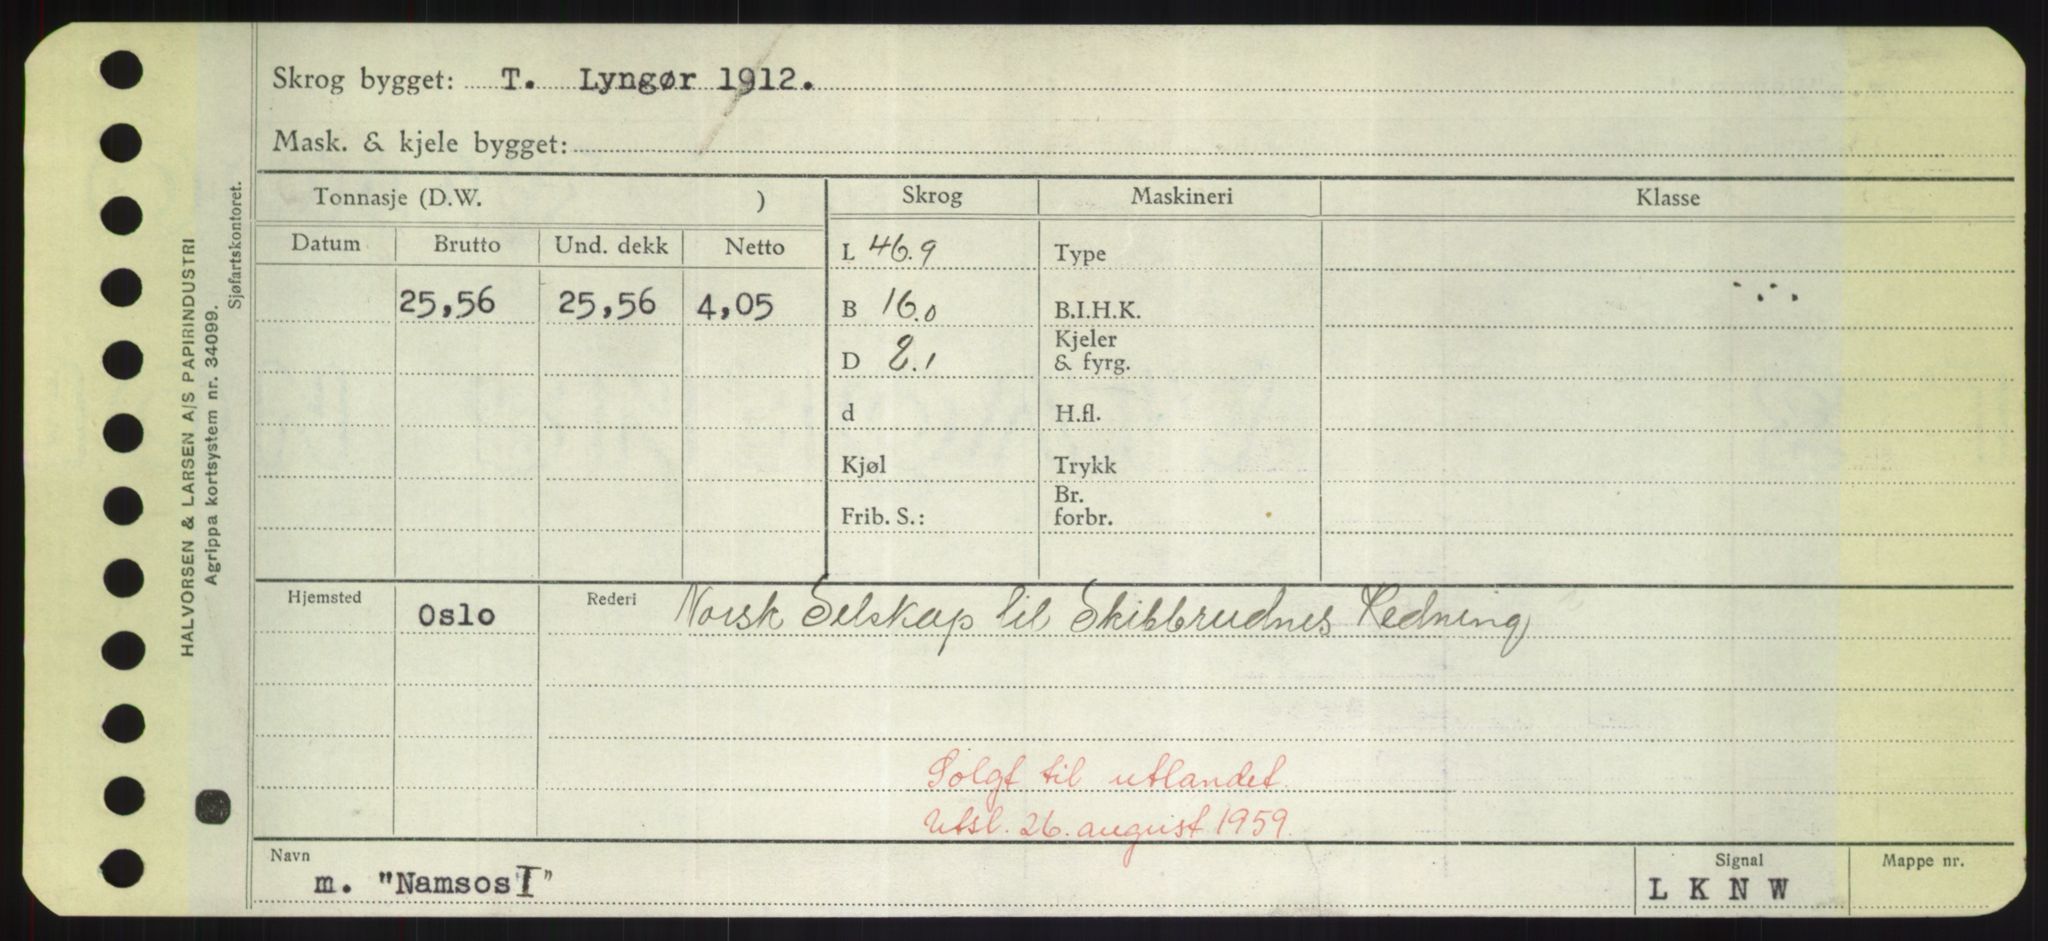 Skrog bygget: T. Lyngør 1912.
Mask. & kjele bygget:
Tonnasje (D.W. )
Skrog
Maskineri
Klasse
Datum
Brutto
Und. dekk
Netto
25,56
25,56
4,05
L 46.9
B 16.0
D 8.1
d
Kjøl
Frib. S.:
Type
B.I.H.K.
Kjeler
& fyrg.
H.fl.
Trykk
Br.
forbr.
Hjemsted
Oslo
Rederi Norsk Selskap til Skibbrudnes Redning
Solgt til utlandet.
Utsl. 26. august 1959.
Navn
m. "Namsos I"
Signal
L K N W
Mappe nr.
HALVORSEN & LARSEN A/S PAPIRINDUSTRI
Agrippa kortsystem nr. 34099.
Sjøfartskontoret.